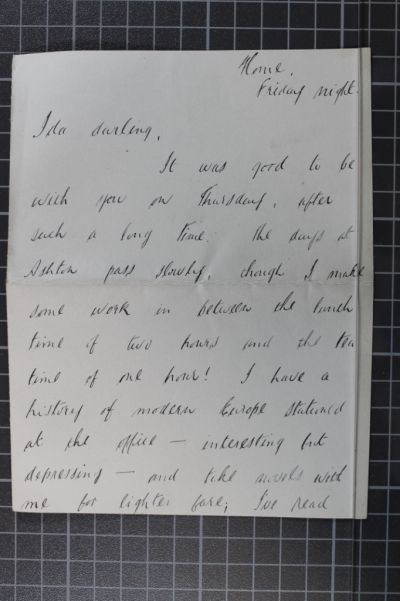 Home,
Friday night.
Ida darling,
It was good to be
with you on Thursday, after
such a long time. The days at
Ashton pass slowly, though I make
some work in between the lunch
time of two hours and the tea
time of one hour! I have a
history of modern Europe stationed
at the office — interesting but
depressing — and take novels with
me for lighter fare; I've read